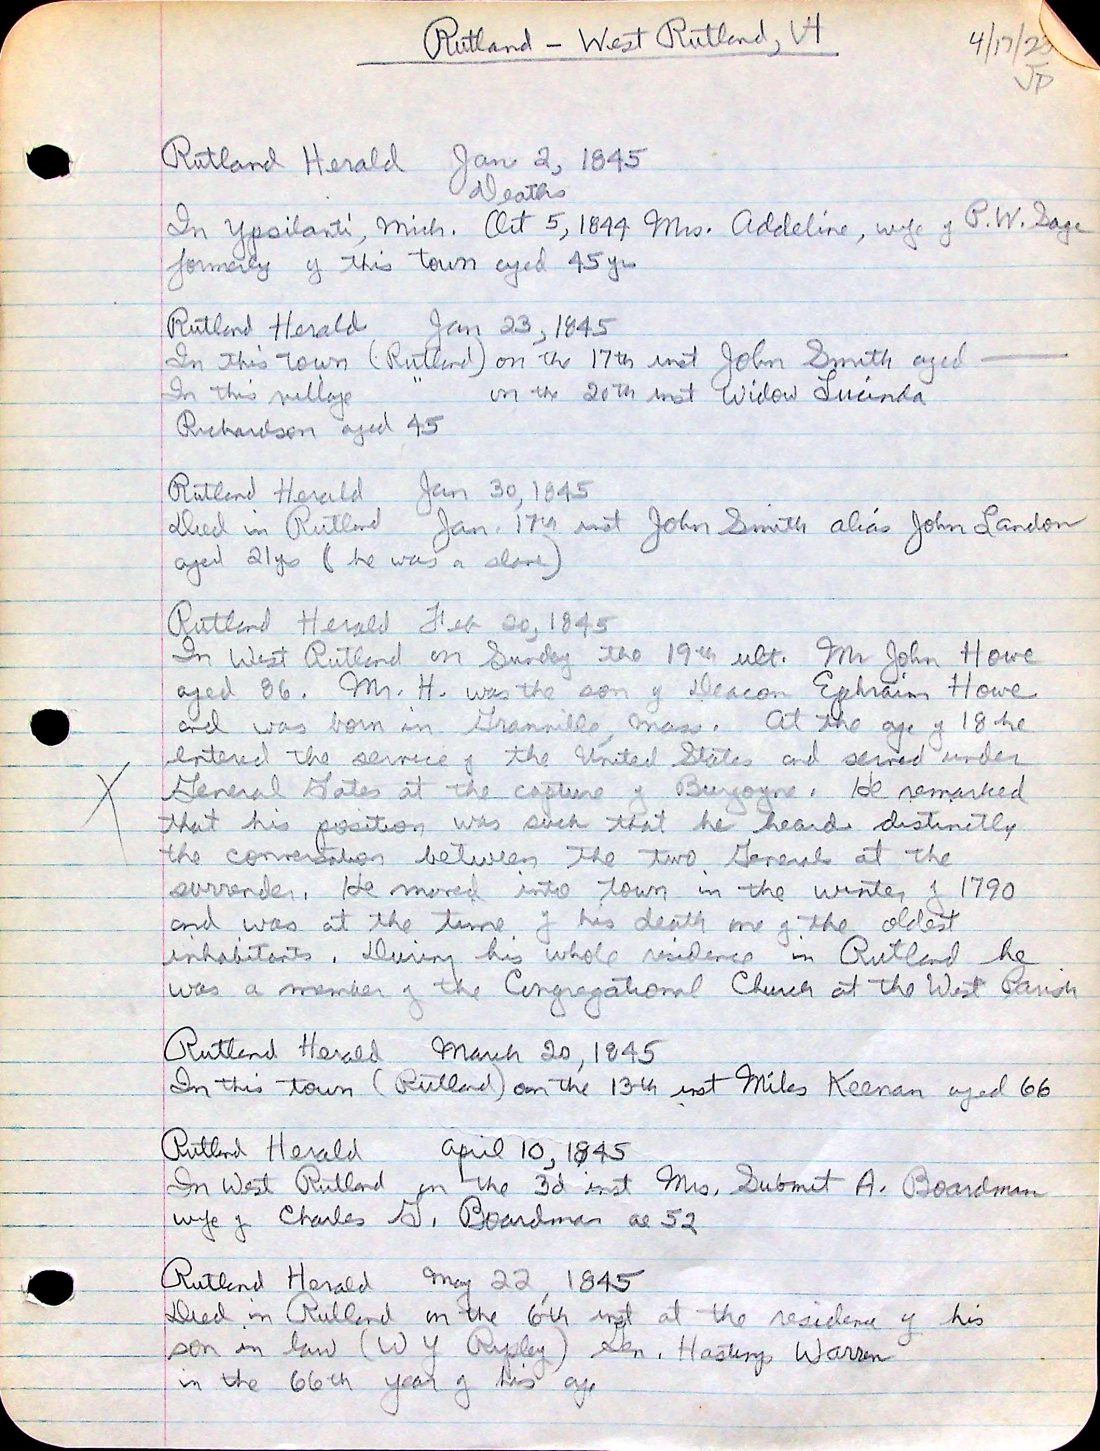 Rutland - West Rutland, Vt
4/17/23
JP
Rutland Herald Jan 2, 1845
Deaths
In Ypsilanti, Mich. Oct 5, 1844 Mrs. Addeline, wife of P.W. Sage
formerly of this town aged 45 yrs
Rutland Herald Jan 23, 1845
In this town (Rutland) on the 17th inst John Smith aged ——
In this village " on the 20th inst Widow Lucinda
Richardson aged 45
Rutland Herald Jan 30, 1845
Died in Rutland Jan. 17th inst John Smith alias John Landon
aged 21 yrs (he was a slave)
Rutland Herald Feb 20, 1845
In West Rutland on Sunday the 19th ult. Mr John Howe
aged 86. Mr. H. was the son of Deacon Ephraim Howe
and was born in Granville, Mass. At the age of 18 he
entered the service of the United States and served under
General Gates at the capture of Burgogne. He remarked
that his position was such that he heard distinctly
the conversation between the two Generals at the
surrender. He moved into town in the winter of 1790
and was at the time of his death one of the oldest
inhabitants. During his whole residence in Rutland he
was a member of the Congregational Church at the West Parish
Rutland Herald March 20, 1845
In this town (Rutland) on the 13th inst Miles Keenan aged 66
Rutland Herald April 10, 1845
In West Rutland on the 3d inst Mrs. Submit A. Boardman
wife of Charles G. Boardman ae 52
Rutland Herald May 22, 1845
Died in Rutland on the 6th inst at the residence of his
son in law (W Y Ripley) Gen. Hastings Warren
in the 66th year of his age